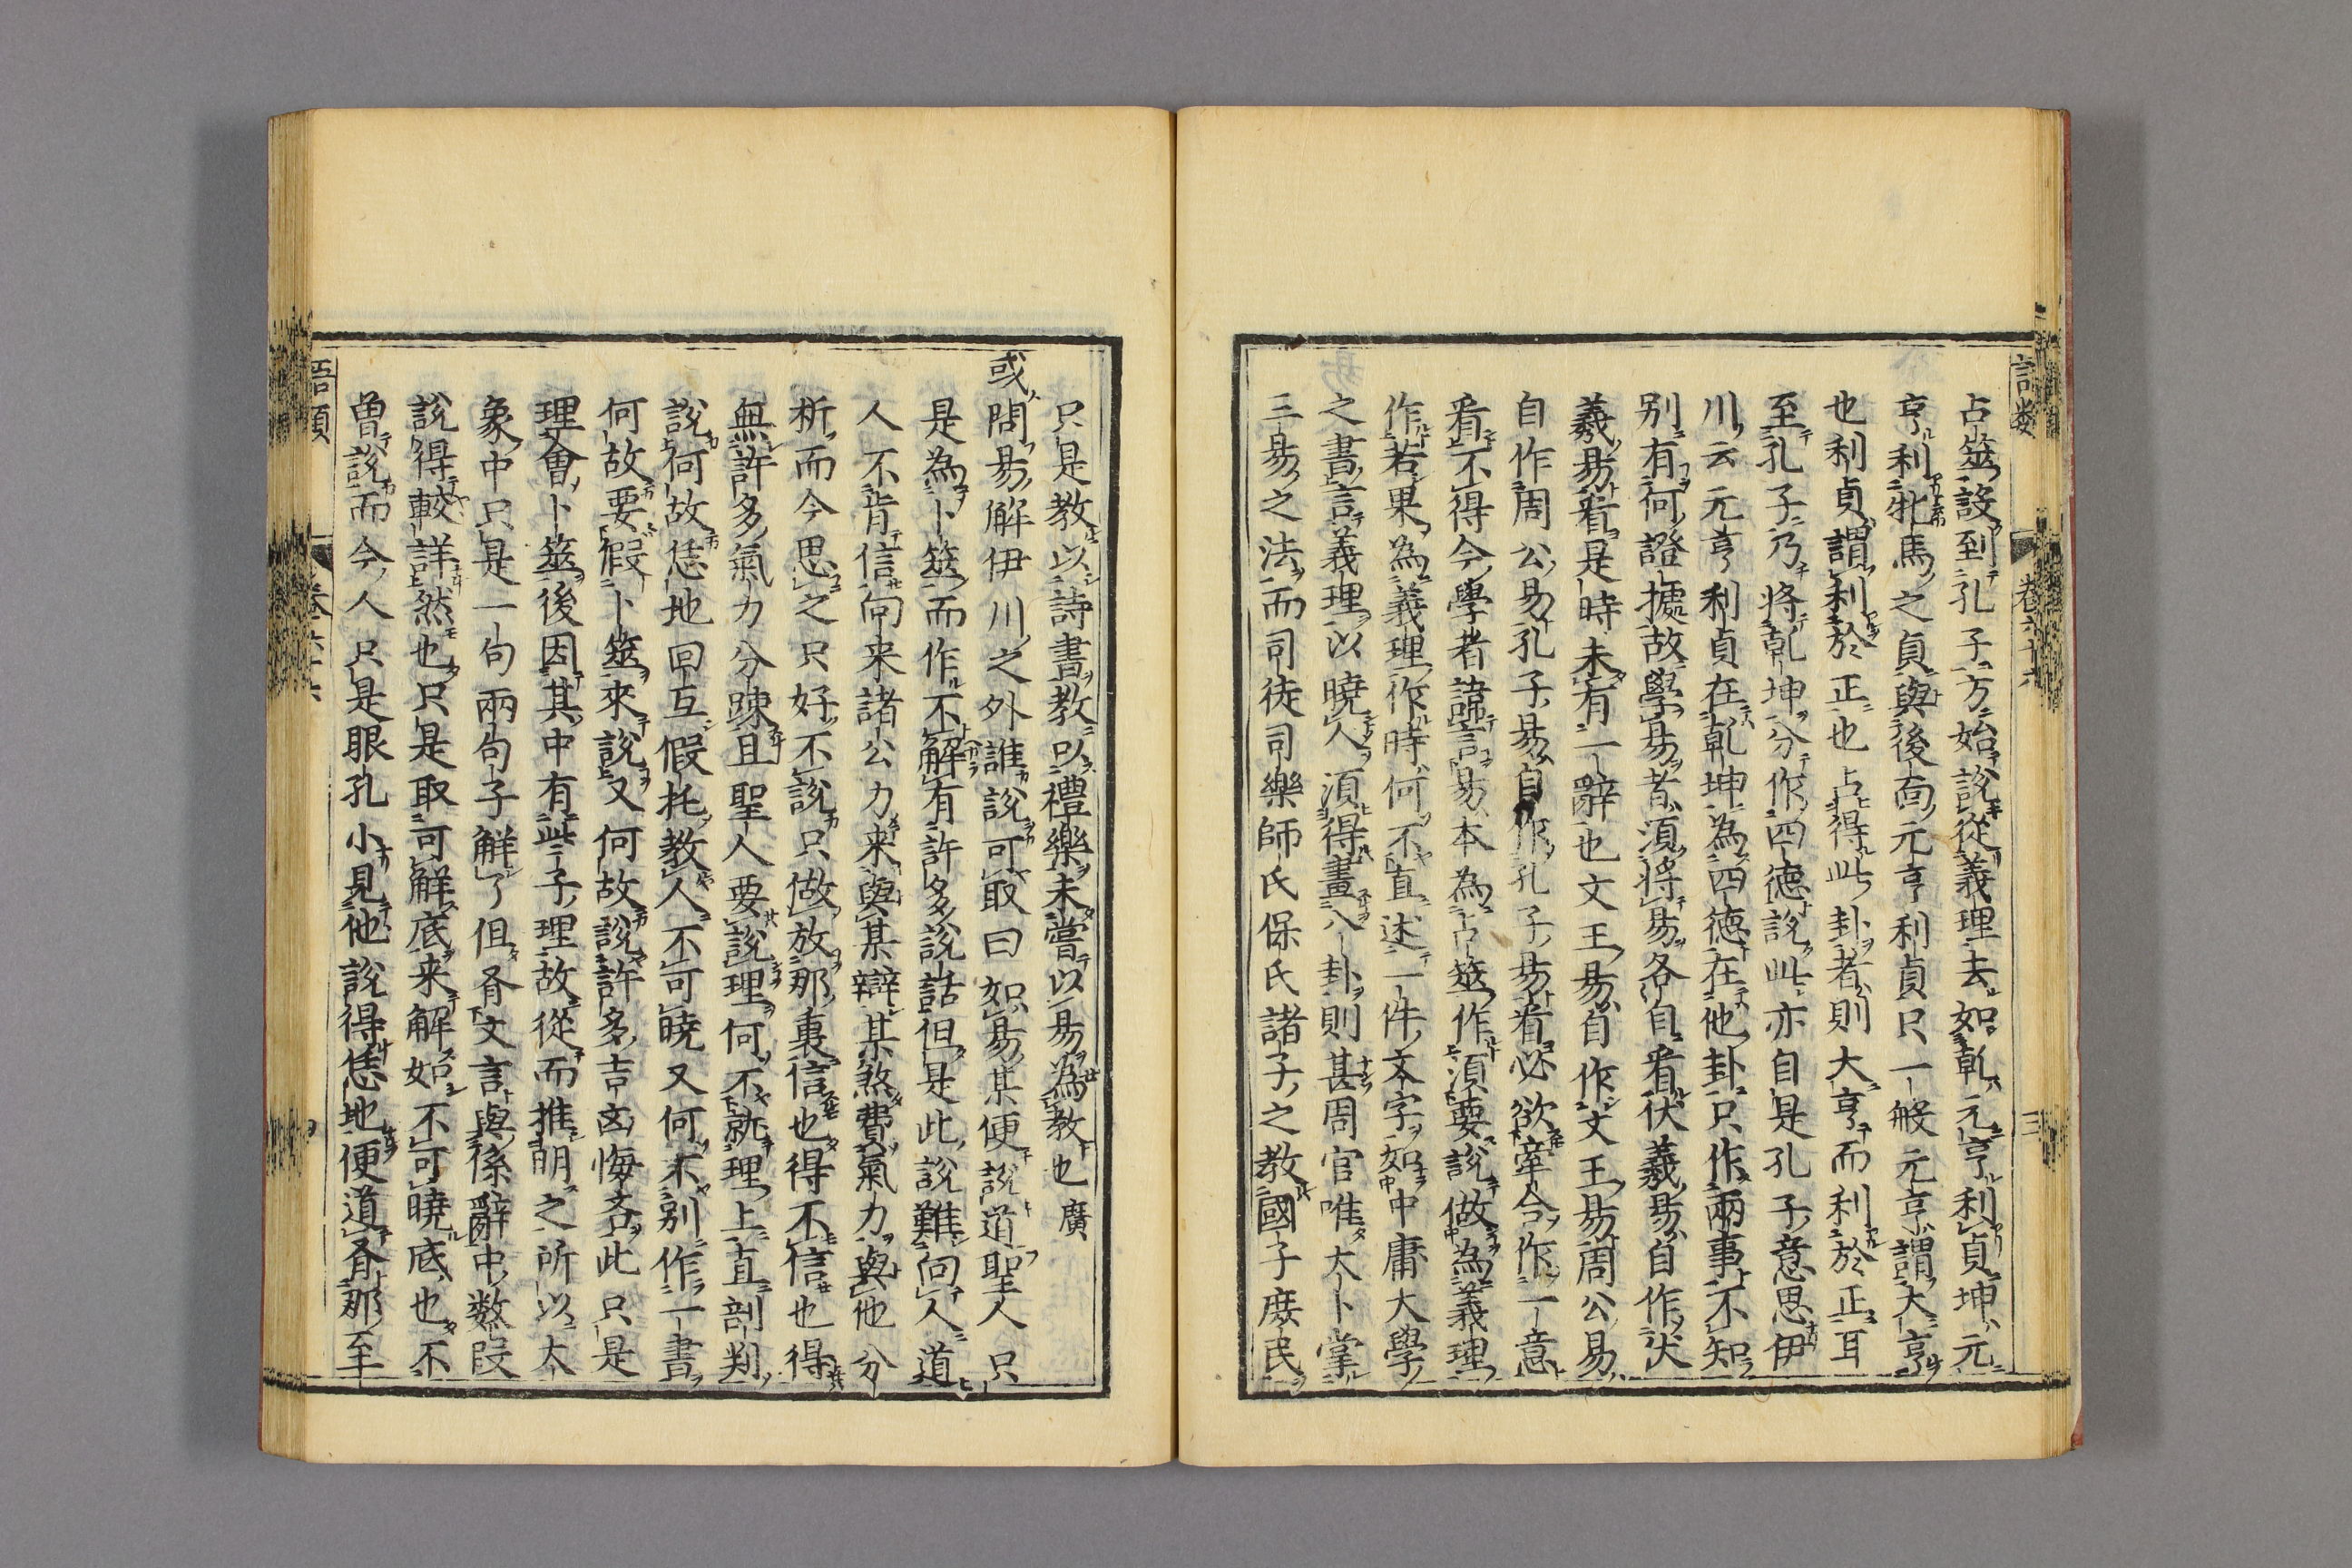 占筮設到孔子方始說從義理去如乹元亨利貞坤元
亨利牝馬之貞與後面元亨利貞只一般元亨謂大亨
也利貞謂利於正也占得此卦者則大亨而利於正耳
至孔子乃將乹坤分作四德說此亦自是孔子意思伊
川云元亨利貞在乹坤為四德在他卦只作兩事不知
別有何證據故學易者須將易各自看伏羲易自作伏
羲易看是時未有一辭也文王易自作文王易周公易
自作周公易孔子易自作孔子易看必欲牽合作一意
看不得今學者諱言易本為占筮作須要說做為義理
作若果為義理作時何不直述一件文字如中庸大學
之書言義理以曉人須得畫八卦則甚周官唯大卜掌
三易之法而司徒司樂師氏保氏諸子之教國子庻民
只是教以詩書教以禮樂未嘗以易為教也廣
或問易解伊川之外誰說可取曰如易某便說道聖人只
是為卜筮而作不解有許多說話但是此說難向人道
人不肯信向来諸公力来與某辯某煞費氣力與他分
析而今思之只好不說只做放那裏信也得不信也得
無許多氣力分踈且聖人要說理何不就理上直剖判
說何故恁地回互假托教人不可曉又何不別作一書
何故要假卜筮來說又何故說許多吉凶悔吝此只是
理會卜筮後因其中有些子理故從而推明之所以大
象中只是一句兩句子解了但有文言與係辭中數段
說得較詳然也只是取可解底来解如不可曉底也不
曾說而今人只是眼孔小見他說得恁地便道有那至
語類